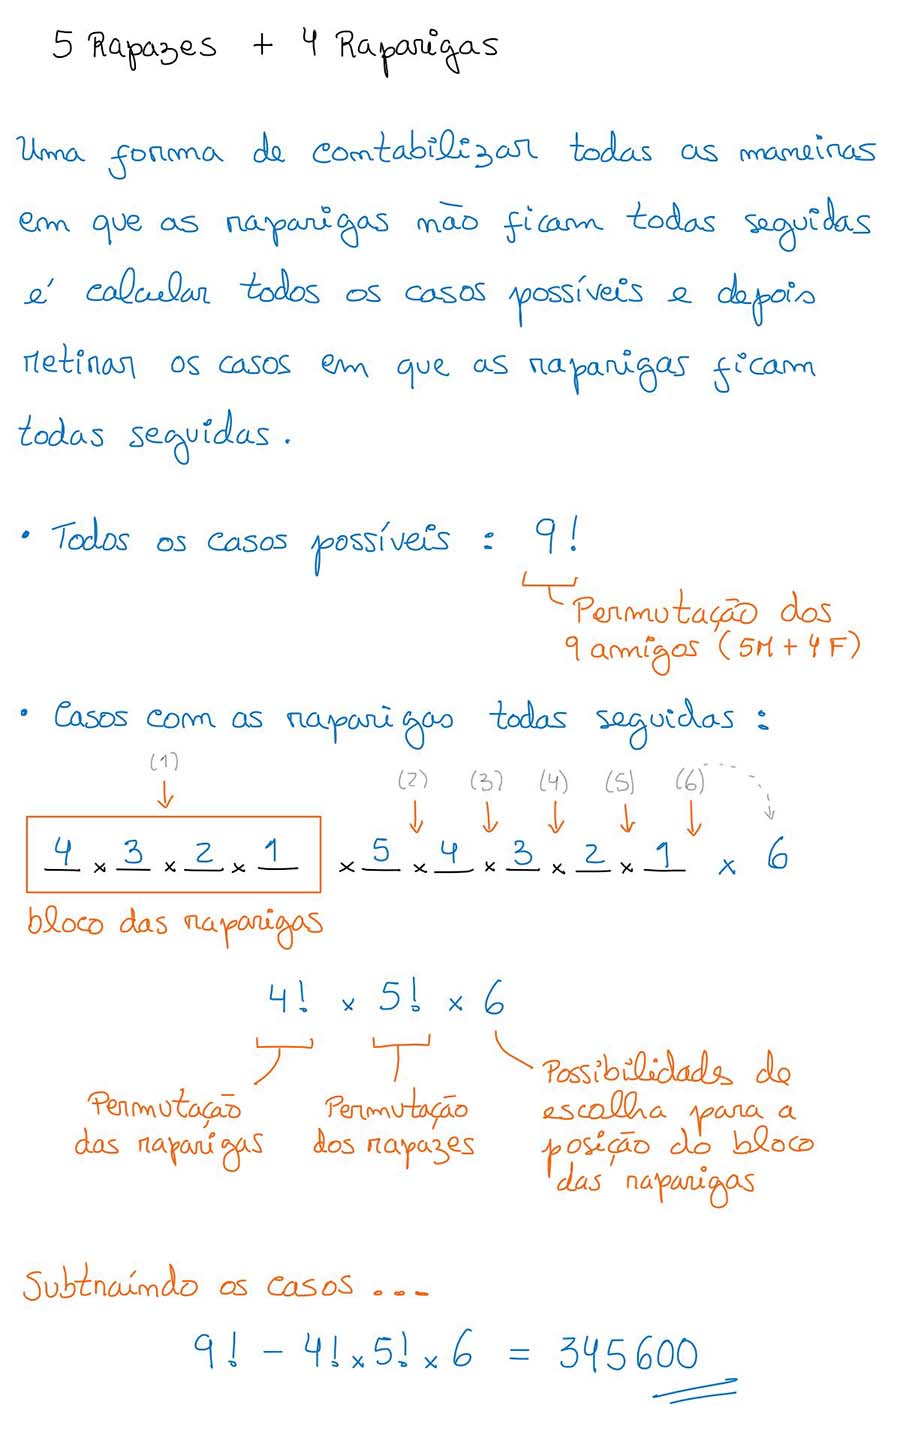 5 Rapazes + 4 Raparigas
Uma forma de contabilizar todas as maneiras
em que as raparigas não ficam todas seguidas
é calcular todos os casos possíveis e depois
retirar os casos em que as raparigas ficam
todas seguidas.
• Todos os casos possíveis : 9!
Permutação dos
9 amigos (5M + 4F)
• Casos com as raparigas todas seguidas :
(1) (2) (3) (4) (5) (6)
4 × 3 × 2 × 1 × 5 × 4 × 3 × 2 × 1 × 6
bloco das raparigas
4! × 5! × 6
Permutação
das raparigas
Permutação
dos rapazes
Possibilidades de
escolha para a
posição do bloco
das raparigas
Subtraíndo os casos ...
9! - 4! × 5! × 6 = 345600